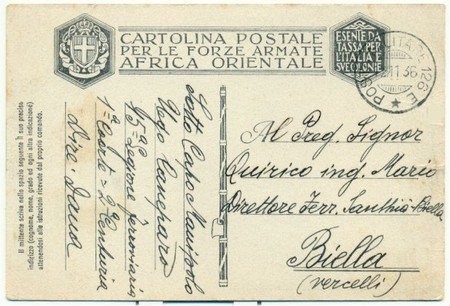 CARTOLINA POSTALE
PER LE FORZE ARMATE
AFRICA ORIENTALE
ESENTE DA
TASSA PER
L'ITALIA E
SVE COLONIE
POS
126 E
11 36
Il militare scriva nello spazio seguente il suo preciso
indirizzo (cognome, nome, grado ed ogni altra indicazione)
attenendosi alle istruzioni ricevute dal proprio comando.
Sotto Capo Manipolo
Ugo Caneparo
5ª Legione ferroviaria
1ª 2ª Centuria
Dire-Daua
Al Preg. Signor
Quirico ing. Mario
Direttore Ferr. Santhià-Biella
Biella
(Vercelli)